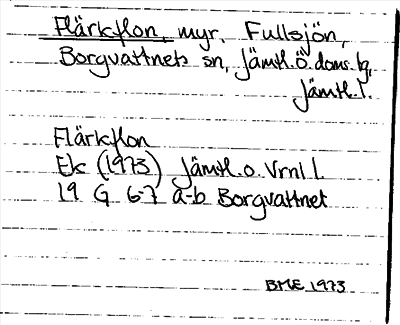 Flärkflon, myr. Fullsjön,
Borgvattnets sn, Jämtl.Ö.doms.tg,
Jämtl.l.
Flärkflon
Ek (1973) Jämtl.o.Vrnl l.
19 G 6-7 a-b Borgvattnet
BME 1973